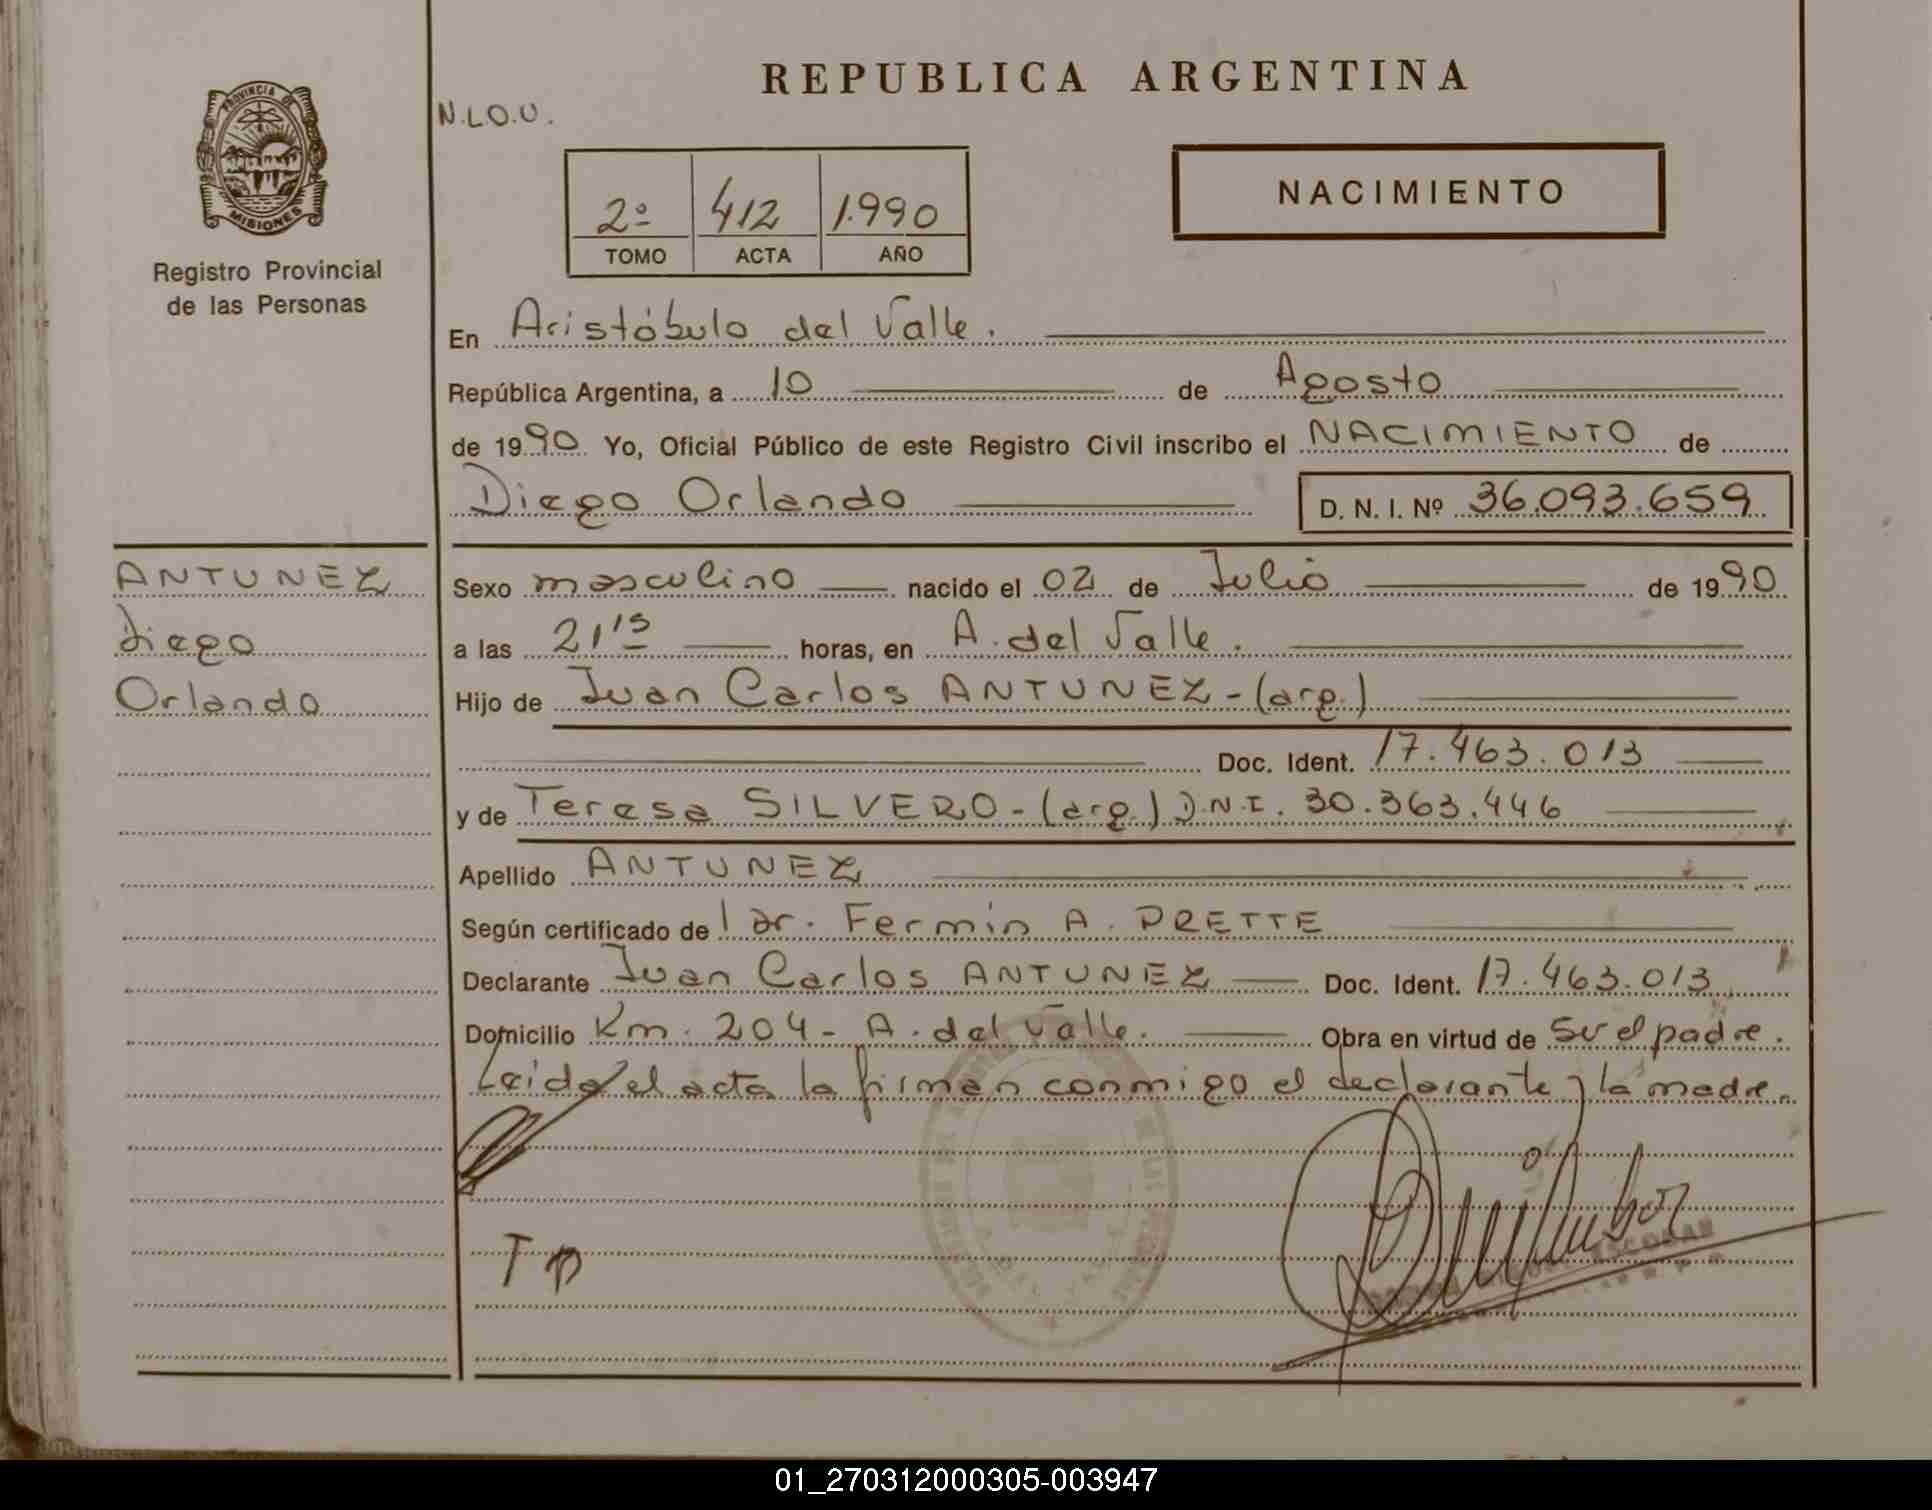 REPUBLICA ARGENTINA
N.LO.U.
PROVINCIA DE
MISIONES
Registro Provincial
de las Personas
2º 412 1.990
TOMO ACTA AÑO
NACIMIENTO
En Aristóbulo del Valle.
República Argentina, a 10 de Agosto
de 1990 Yo, Oficial Público de este Registro Civil inscribo el NACIMIENTO de
Diego Orlando D. N. I. Nº 36.093.659
ANTUNEZ
Diego
Orlando
Sexo masculino nacido el 02 de Julio de 1990
a las 21,15 horas, en A. del Valle.
Hijo de Juan Carlos ANTUNEZ - (arg.)
Doc. Ident. 17.463.013
y de Teresa SILVERO - (arg.) D.N.I. 30.363.446
Apellido ANTUNEZ
Según certificado de l dr. Fermin A. PRETTE
Declarante Juan Carlos ANTUNEZ Doc. Ident. 17.463.013
Domicilio Km. 204 - A. del Valle. Obra en virtud de Ser el padre.
Leida el acta la firman conmigo el declarante y la madre.
ESCOBAR
01_270312000305-003947